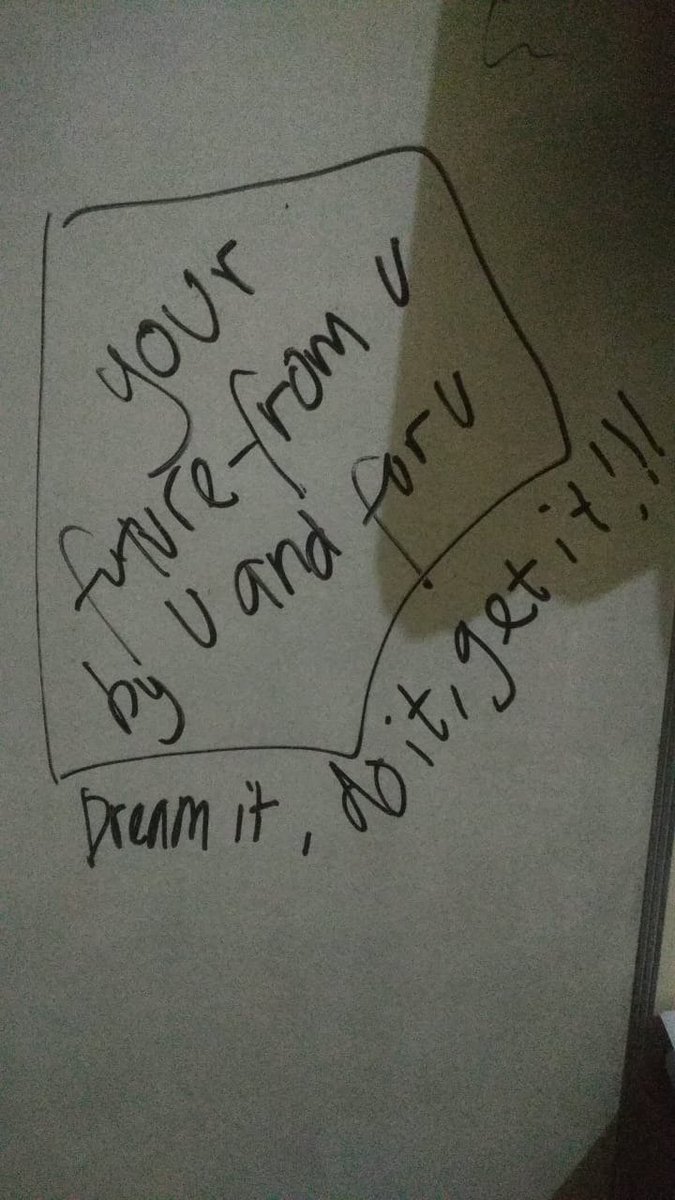 your
future from u
by u and for u
Dream it, do it, get it!!!